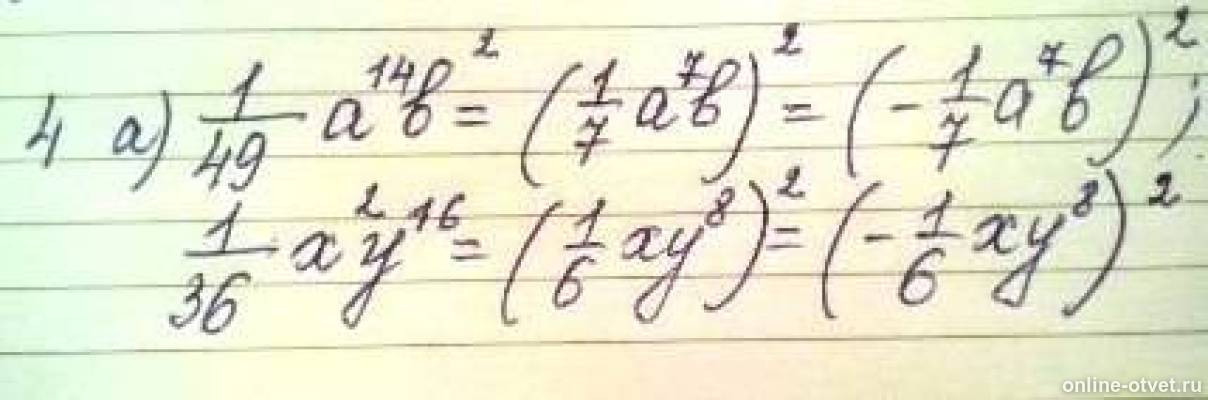 4 а) 1/49 a¹⁴b² = (1/7 a⁷b)² = (-1/7 a⁷b)²;
1/36 x²y¹⁶ = (1/6 xy⁸)² = (-1/6 xy⁸)²
online-otvet.ru